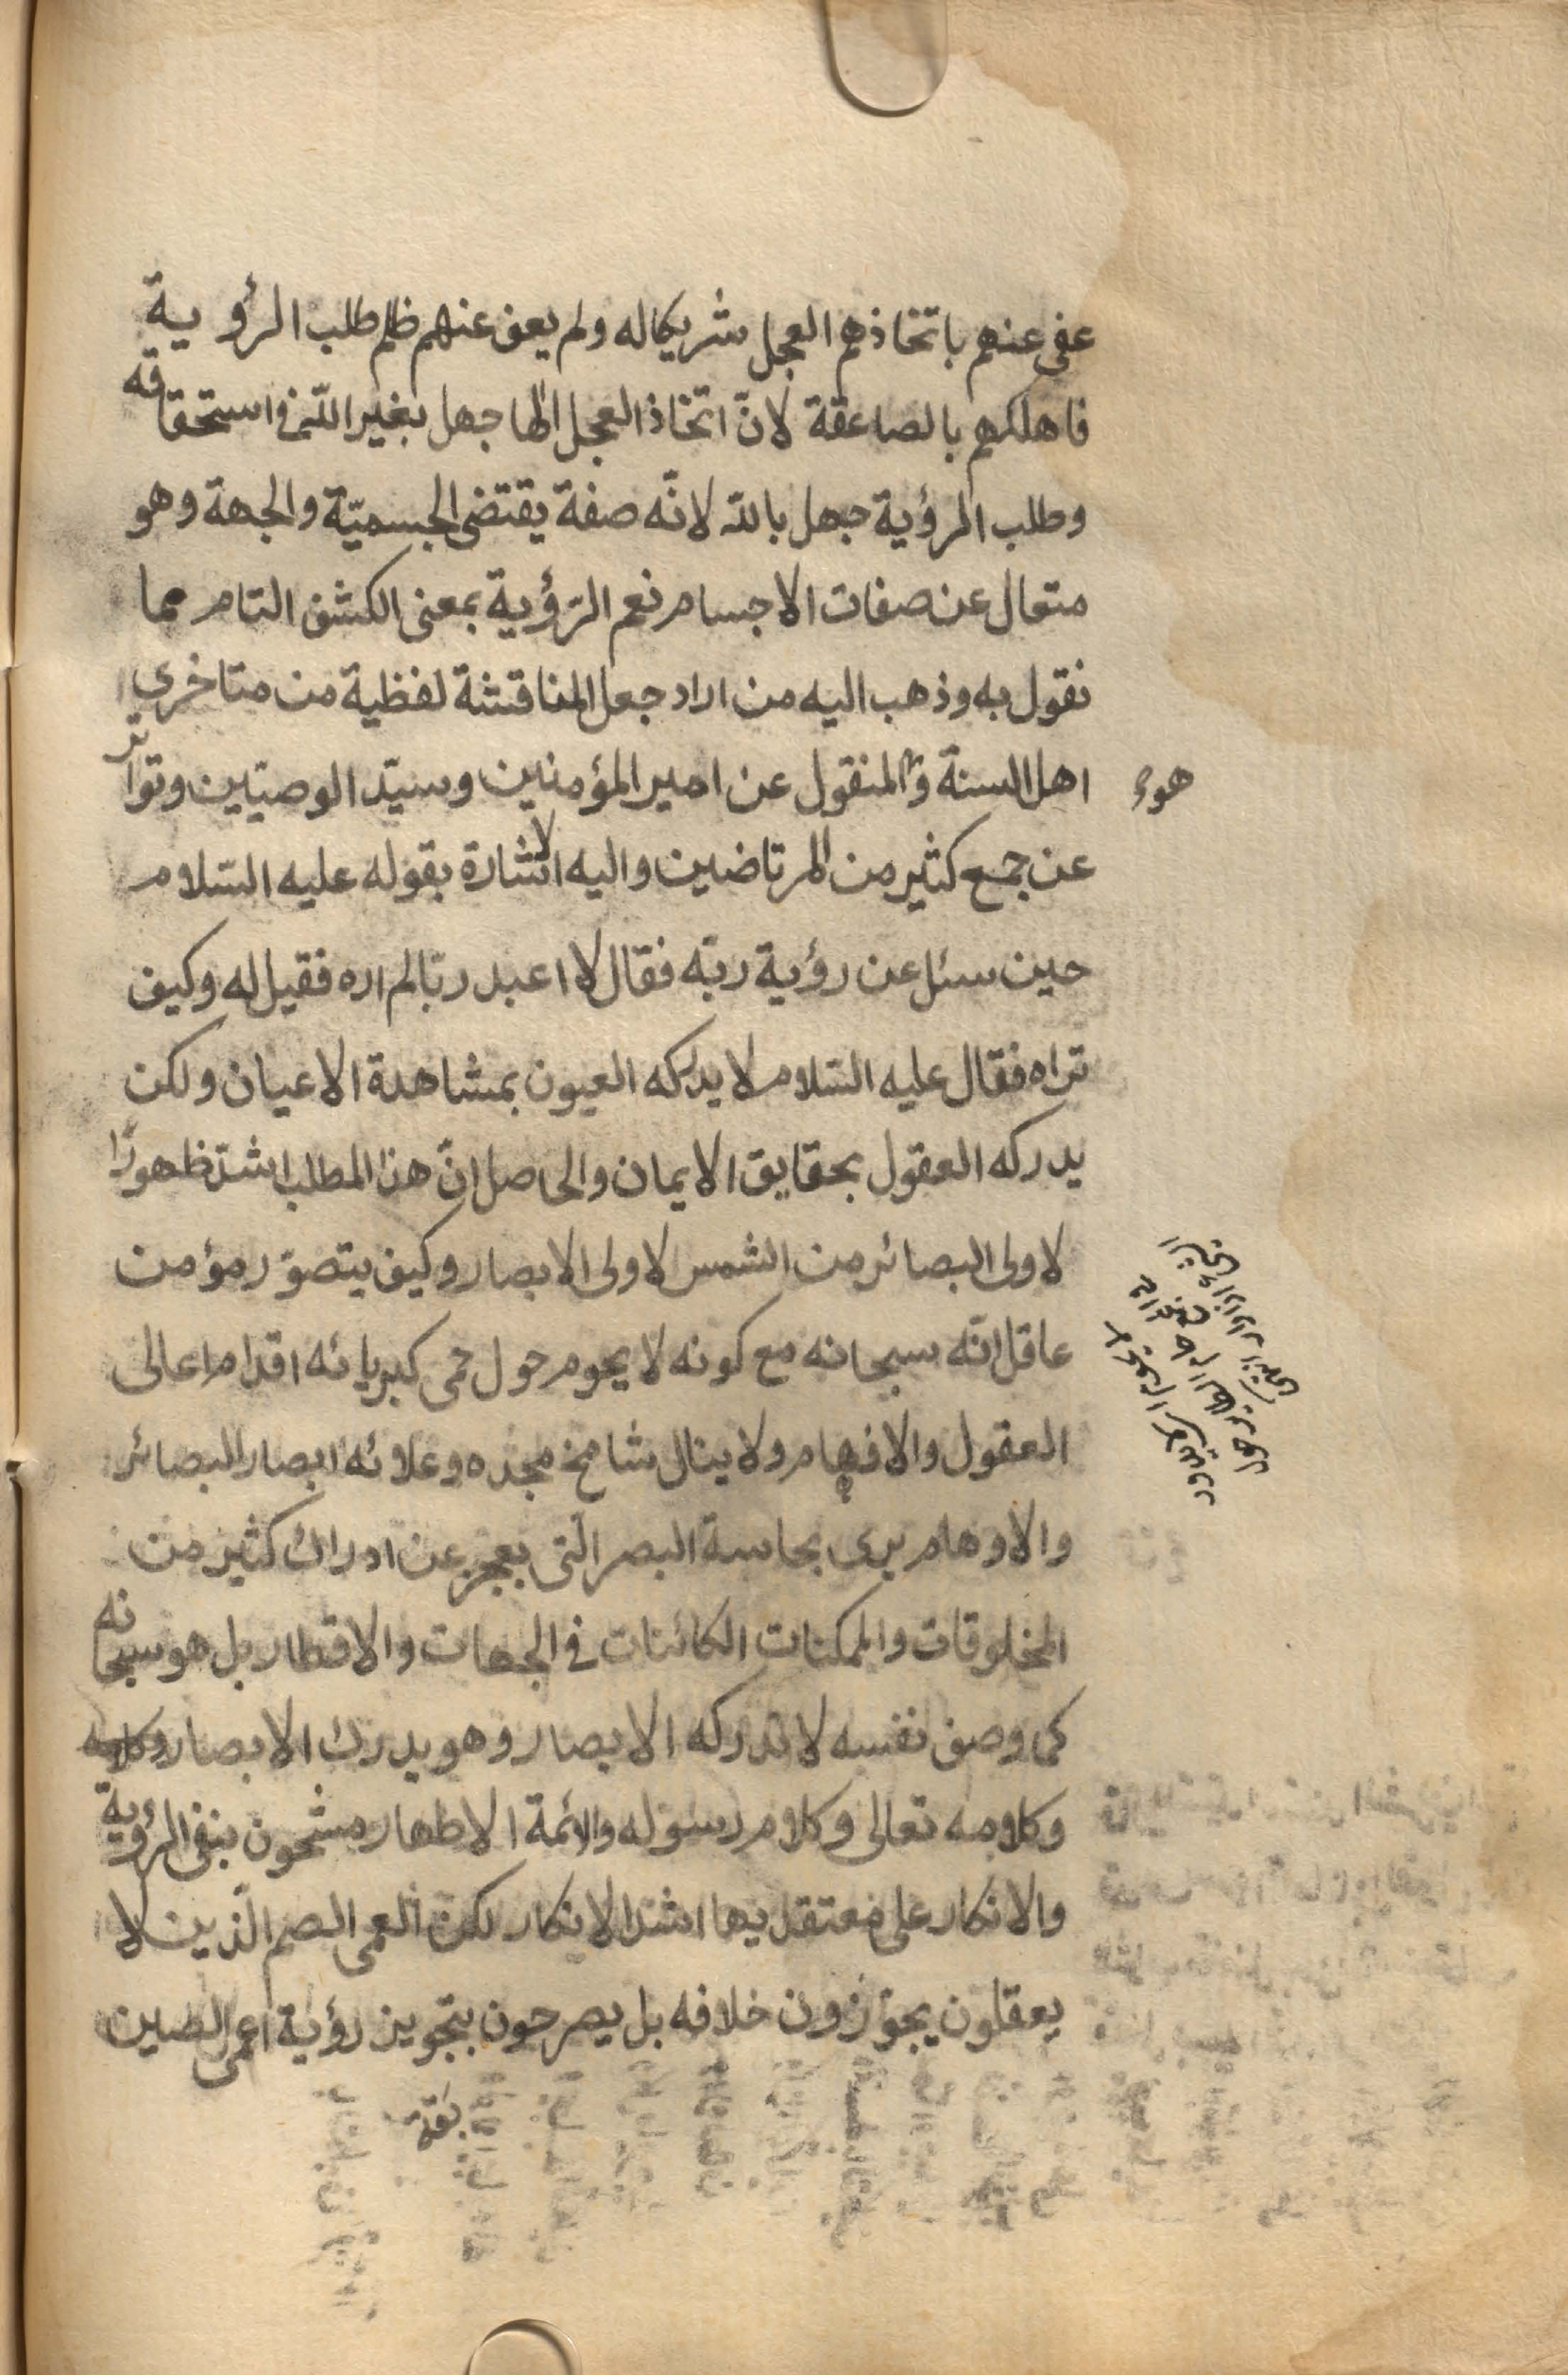 عفى عنهم باتخاذهم العجل شريكا له ولم يعف عنهم ظلم طلب الرؤية
فاهلكهم بالصاعقة لانّ اتخاذ العجل الٰها جهل بغير اللّه في استحقاقه
وطلب الرؤية جهل بالله لانّه صفة يقتضى الجسميّة والجهة وهو
متعال عن صفات الاجسام نعم الرّؤية بمعنى الكشف التام مما
نقول به وذهب اليه من اراد جعل المناقشة لفظية من متاخرى
اهل السنة والمنقول عن امير المؤمنين وسيّد الوصيّين وتواتر
هو
عن جمع كثير من المرتاضين واليه الاشارة بقوله عليه السّلام
حين سئل عن رؤية ربّه فقال لا اعبد ربّا لم اره فقيل له وكيف
تراه فقال عليه السّلام لا يدركه العيون بمشاهدة الاعيان ولكن
يدركه العقول بحقايق الايمان والحاصل انّ هذا المطلب اشدّ ظهورًا
لاولى البصائر من الشمس لاولى الابصار وكيف يتصوّر مؤمن
عاقل انّه سبحانه مع كونه لا يحوم حول حمى كبريائه اقدام اعالى
العقول والافهام ولا ينال شامخ مجده وعلائه ابصار البصائر
والاوهام يرى بحاسة البصر الّتى يعجز عن ادراك كثير من
المخلوقات والممكنات الكائنات في الجهات والاقطار بل هو سبحانه
كما وصف نفسه لا تدركه الابصار وهو يدرك الابصار وكلامه
وكلامه تعالى وكلام رسوله والائمة الاطهار مشحون بنفى الرؤية
والانكار على معتقديها اشد الانكار لكن العمى الصم الّذين لا
يعقلون يجوّزون خلافه بل يصرحون بتجويز رؤية اعمى الصين
بقة